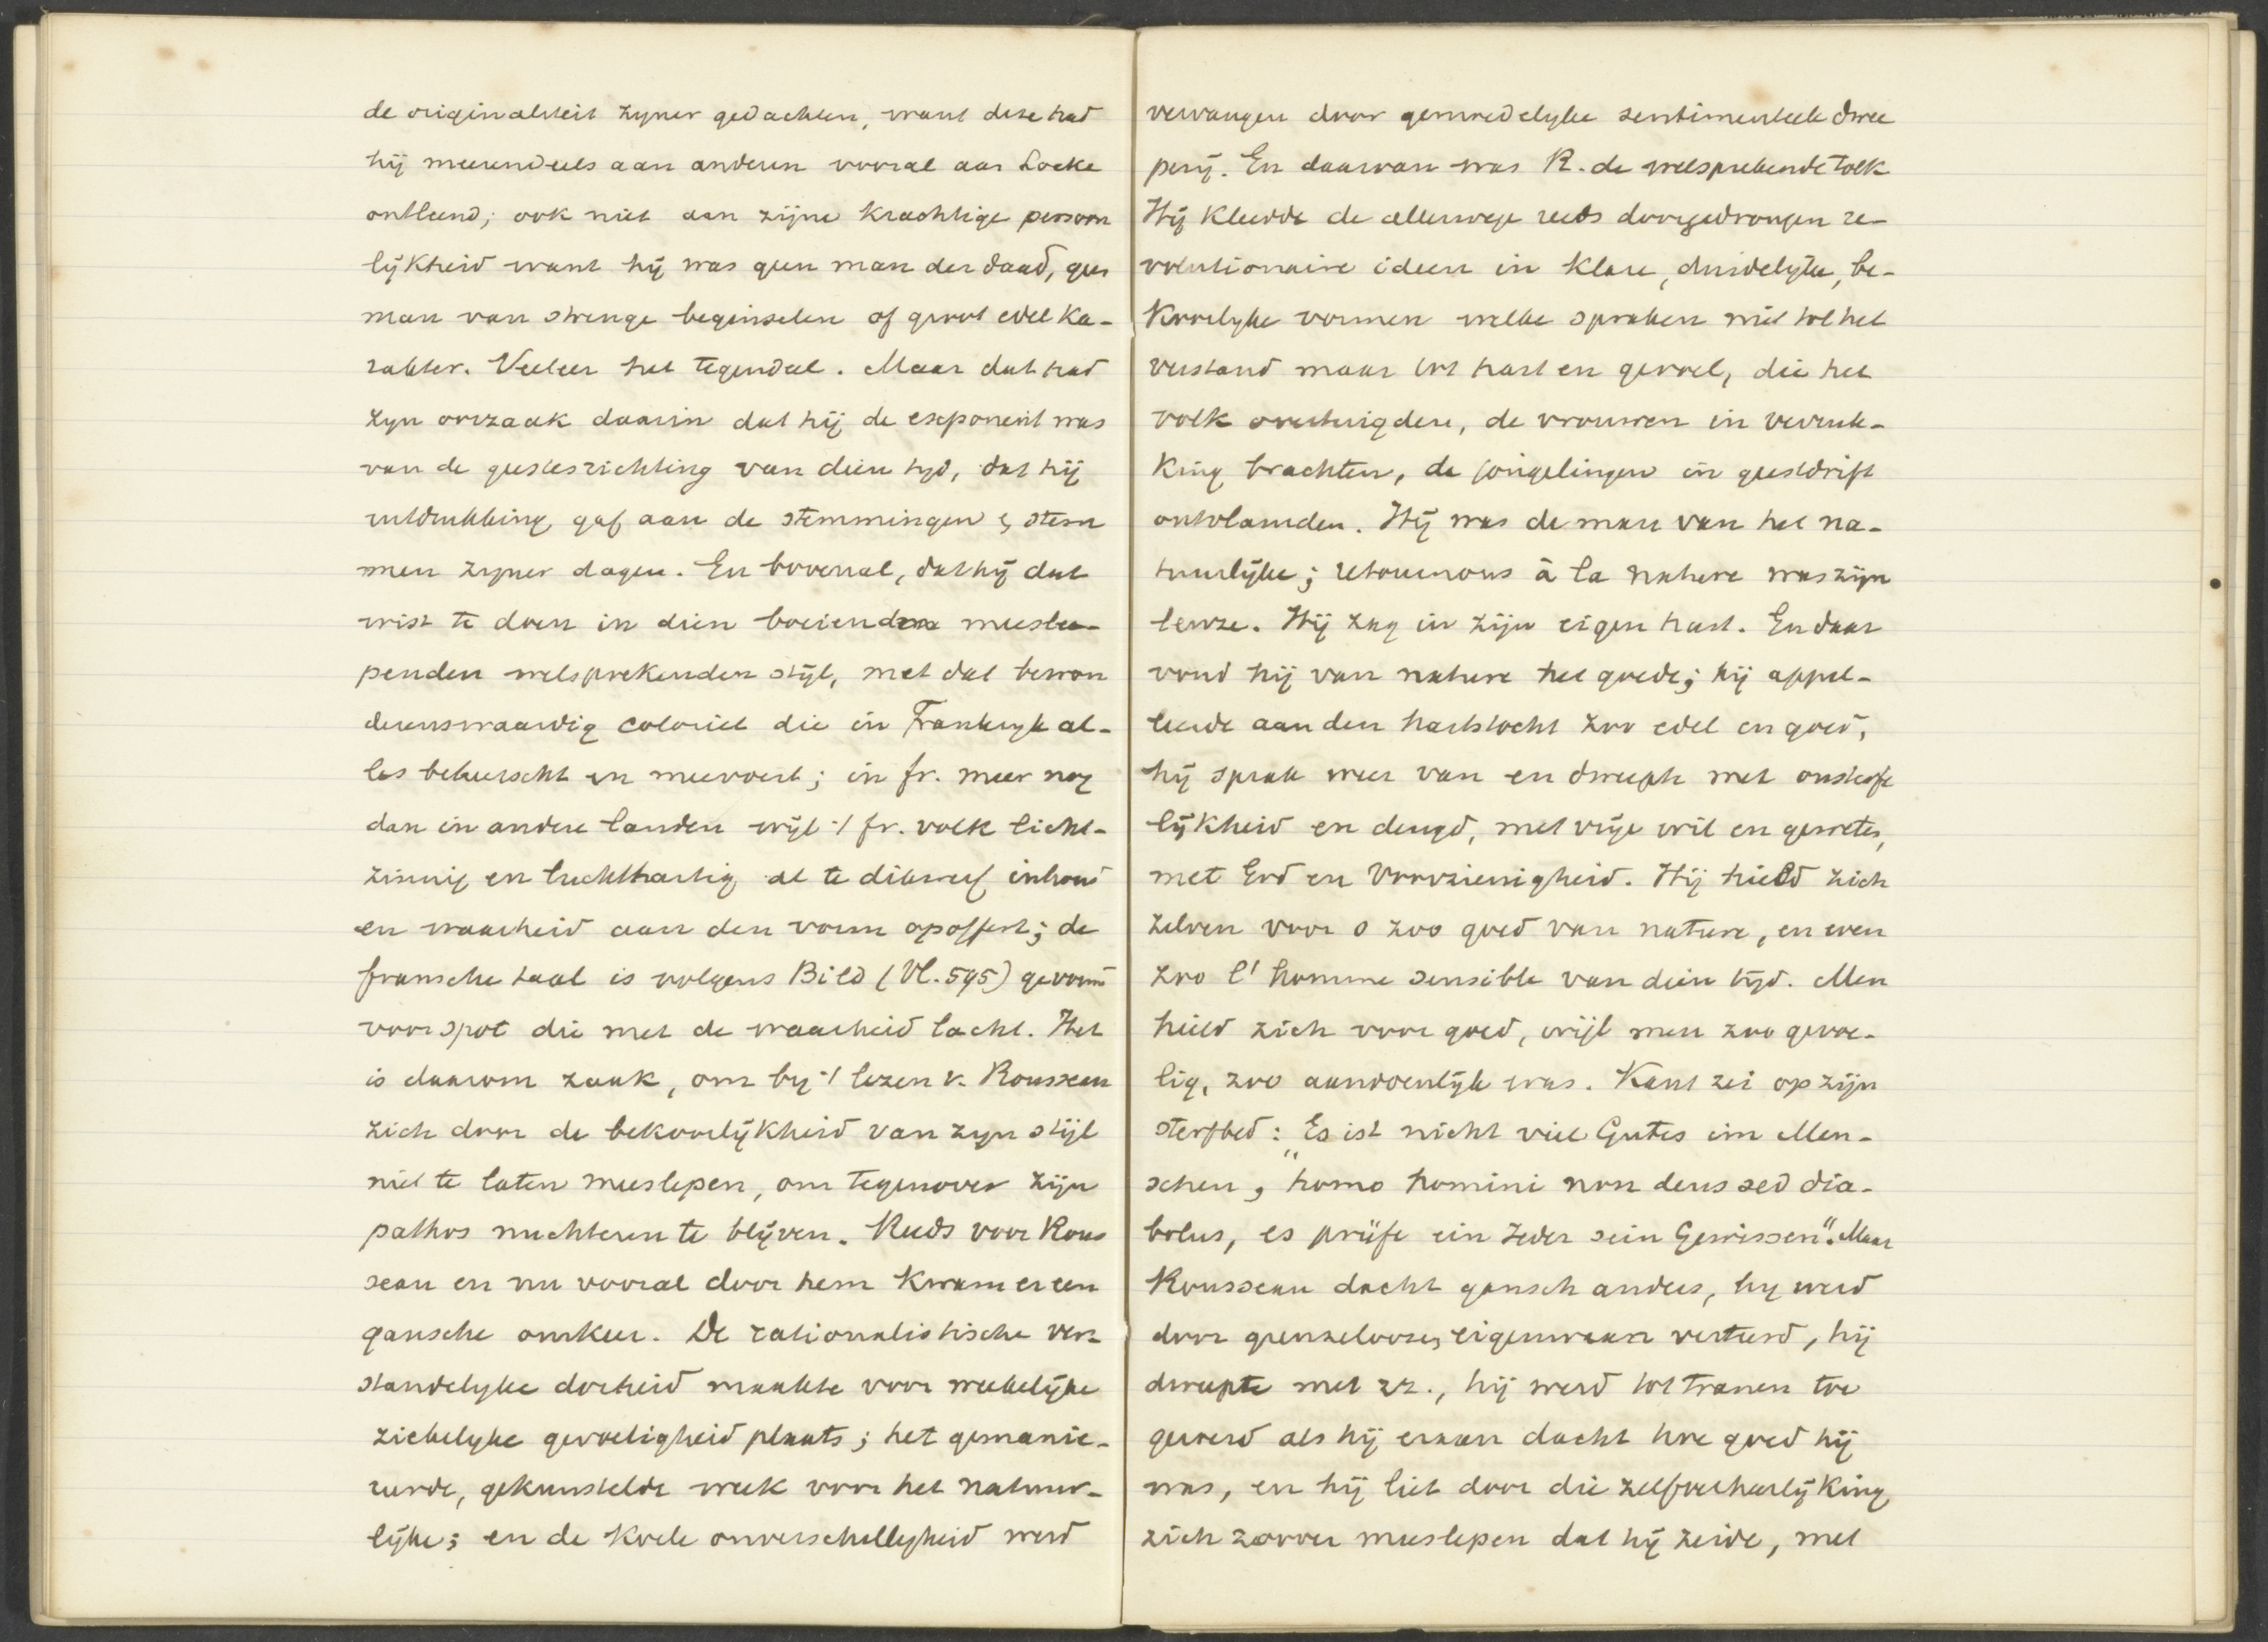 de originaliteit zyner gedachten, want deze had
hij meerendeels aan anderen vooral aan Locke
ontleend; ook niet aan zijne krachtige persoon
lijkheid want hij was geen man der daad, geen
man van strenge beginselen of groot edel ka-
rakter. Veeleer het tegendeel. Maar dat had
zyn oorzaak daarin dat hij de exponent was
van de geestesrichting van dien tyd, dat hij
uitdrukking gaf aan de stemmingen & stem
men zyner dagen. En bovenal, dat hij dat
wist te doen in dien boeienden meesle-
penden welsprekenden stijl, met dat bewon
derenswaardig coloriet die in Frankryk al-
les beheerscht en meevoert; in fr. meer nog
dan in andere landen wijl 't fr. volk licht-
zinnig en luchthartig al te dikwerf inhoud
en waarheid aan den vorm opoffert; de
fransche taal is volgens Bild (Vl. 595) gevormd
voor spot die met de waarheid lacht. Het
is daarom zaak, om by 't lezen v. Rousseau
zich door de bekoorlijkheid van zyn stijl
niet te laten meeslepen, om tegenover zijn
pathos nuchteren te blijven. Reeds voor Rous
seau en nu vooral door hem kwam er een
gansche omkeer. De rationalistische ver
standelyke dorheid maakte voor weekelijke
ziekelyke gevoeligheid plaats; het gemanie-
reerde, gekunstelde week voor het natuur-
lijke; en de koele onverschilligheid werd
vervangen door gemoedelyke sentimenteele dwee
perij. En daarvan was R. de welsprekende tolk
Hij kleedde de allerwege reeds doorgedrongen re-
volutionaire ideen in klare, duidelyke, be-
koorlyke vormen welke spraken niet tot het
verstand maar tot hart en gevoel, die het
volk overtuigden, de vrouwen in verruk-
king brachten, de jongelingen in geestdrift
ontvlamden. Hij was de man van het na-
tuurlijke; retournons à la nature was zijn
leuze. Hij zag in zijn eigen hart. En daar
vond hij van nature het goede; hij appel-
leerde aan den hartstocht zoo edel en goed,
hij sprak weer van en dweepte met onsterfe
lijkheid en deugd, met vrije wil en geweten,
met God en Voorzienigheid. Hij hield zich
zelven voor o zoo goed van nature, en even
zoo l'homme sensible van dien tijd. Men
hield zich voor goed, wijl men zoo gevoe-
lig, zoo aandoenlijk was. Kant zei op zijn
sterfbed: „Es ist nicht viel Gutes im Men-
schen, homo homini non deus sed dia-
bolus, es prüfe ein Jeder sein Gewissen". Maar
Rousseau dacht gansch anders, hy werd
door grenzeloozen eigenwaan verteerd, hij
dweepte met zz., hij werd tot tranen toe
geroerd als hij eraan dacht hoe goed hij
was, en hij liet door die zelfverheerlijking
zich zoover meeslepen dat hij zeide, met